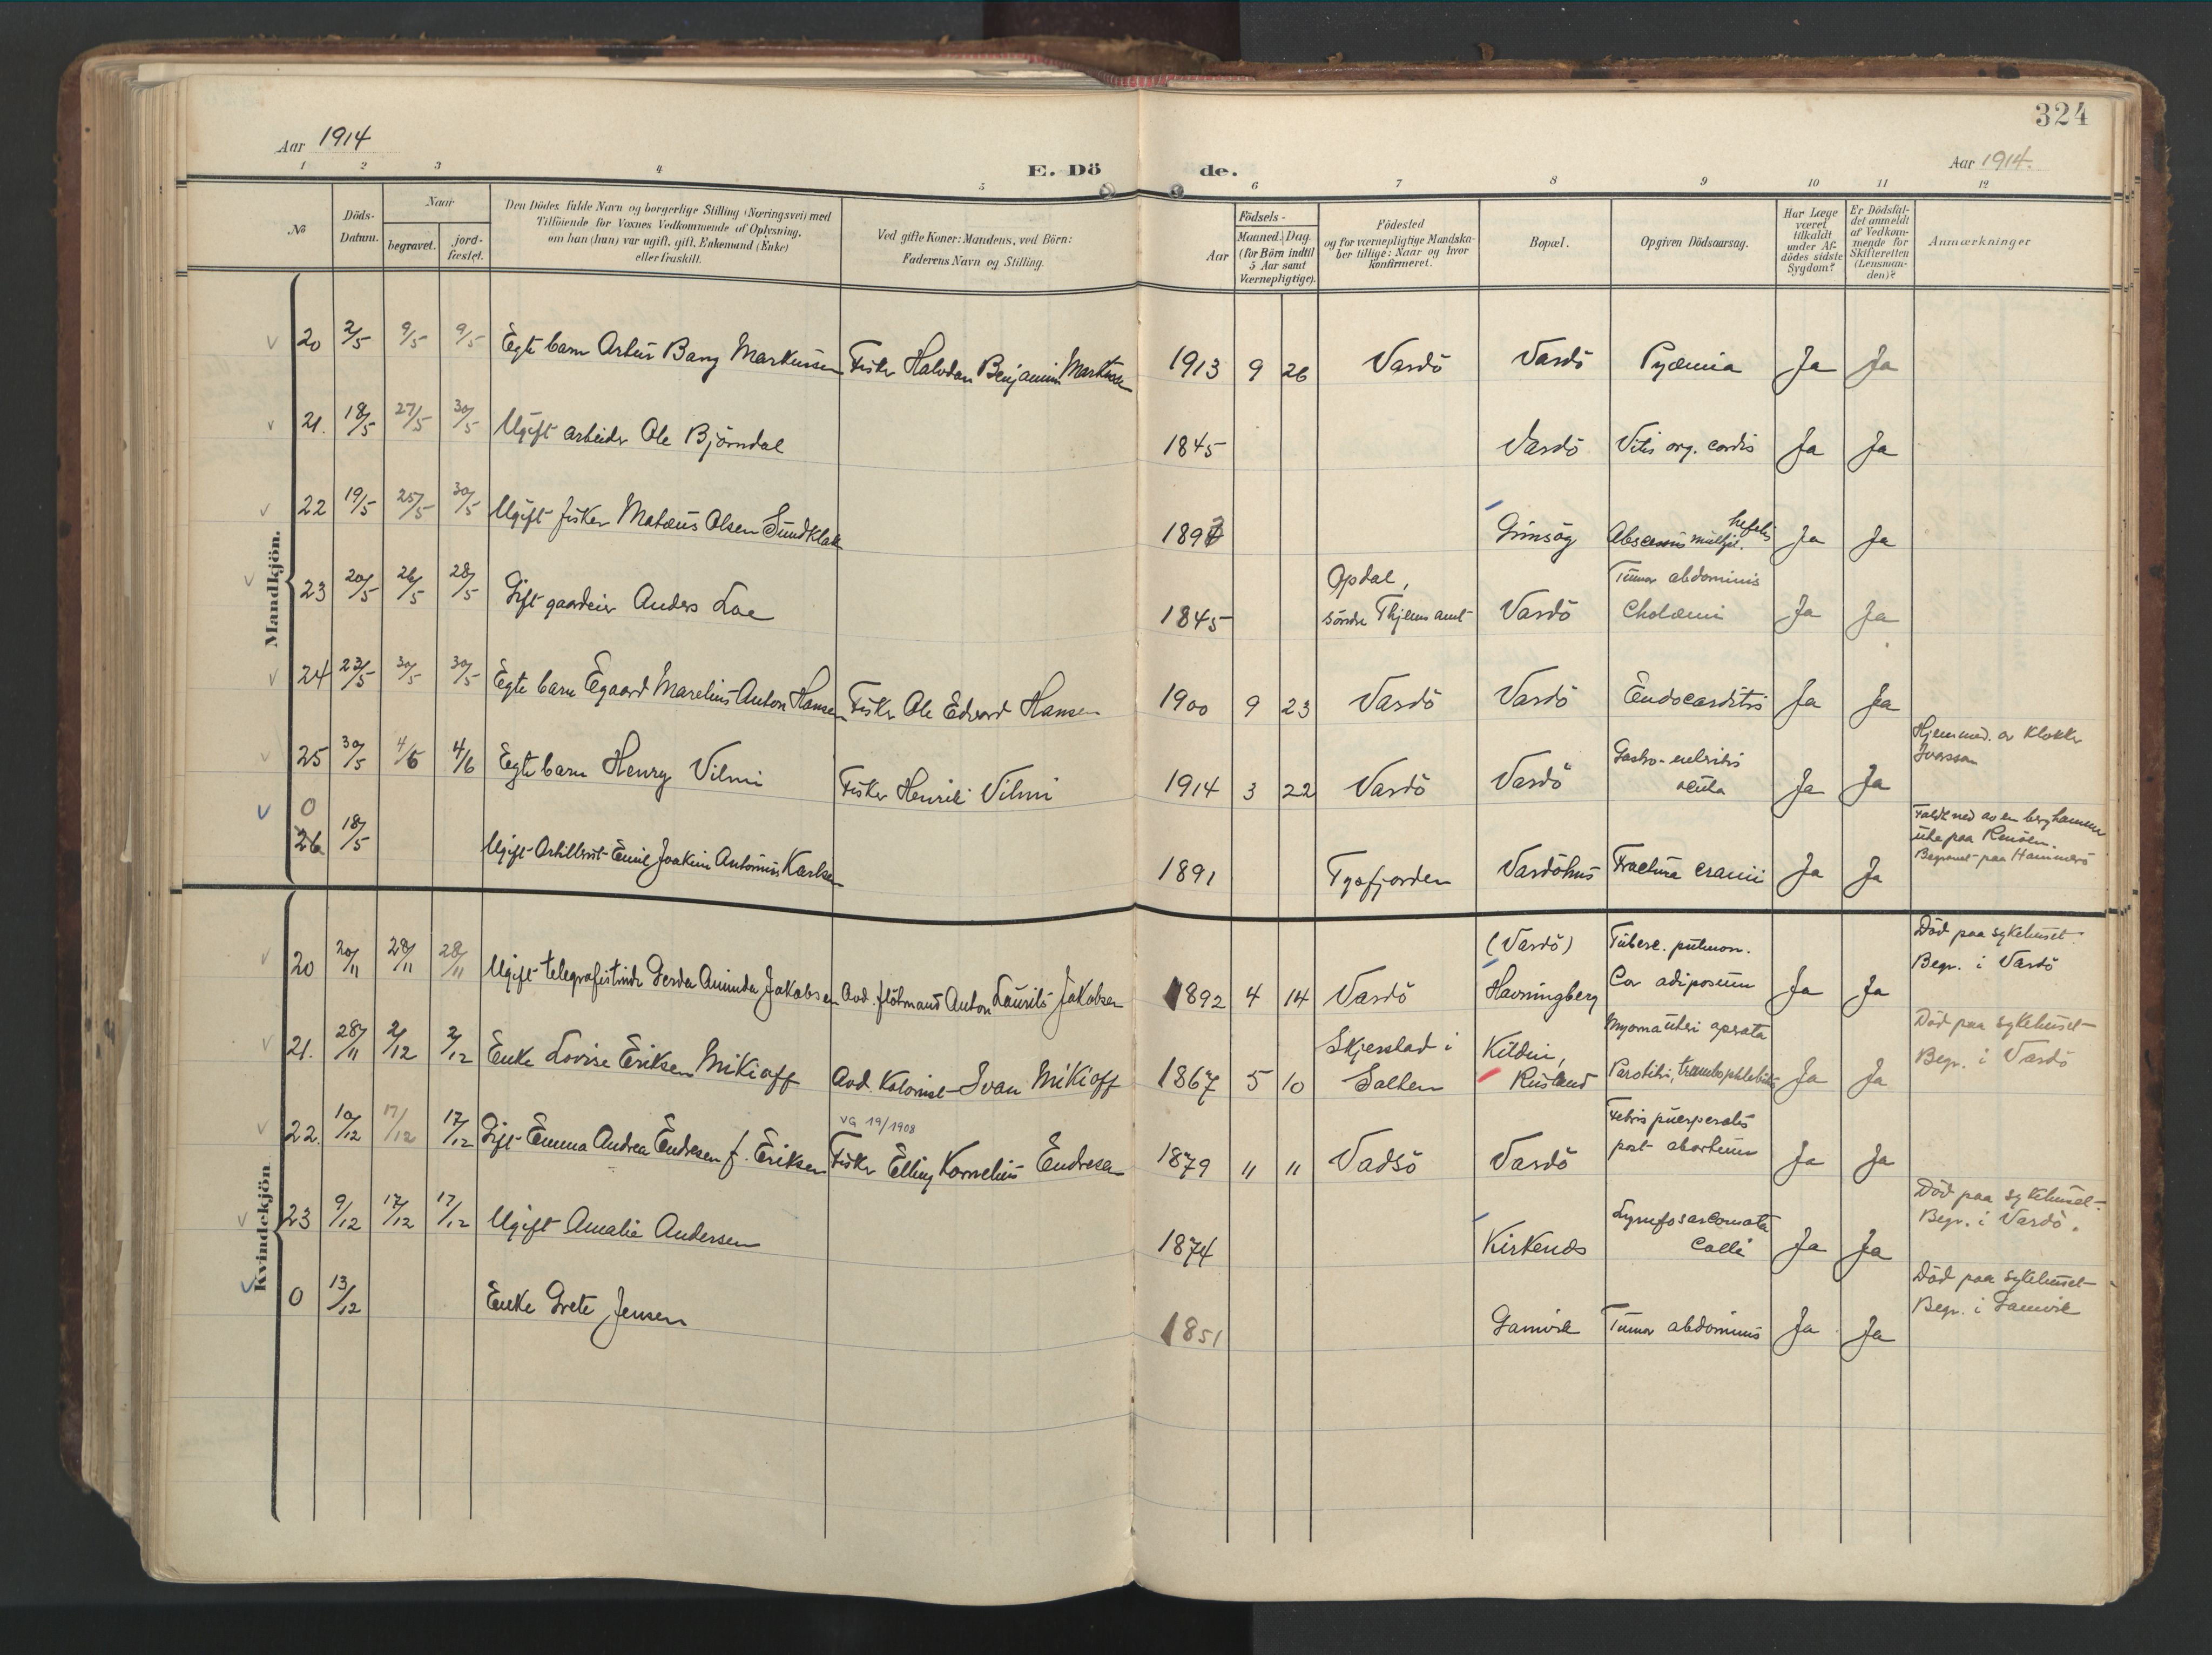 324
Aar 1914
Aar 1914.
E. Dö de.
1 2 3 4 5 6 7 8 9 10 11 12
No
Döds-Datum.
Naar
begravet.
jord-fæstet.
Den Dödes fulde Navn og borgerlige Stilling (Næringsvei) med
Tilföiende for Voxnes Vedkommende af Oplysning,
om han (hun) var ugift, gift, Enkemand (Enke)
eller fraskilt.
Ved gifte Koner: Mandens, ved Börn:
Faderens Navn og Stilling.
Födsels-
Aar
Maaned. Dag.
(for Börn indtil
5 Aar samt
Værnepligtige).
Födested
og for værnepligtige Mandska-
ber tillige: Naar og hvor
Konfirmeret.
Bopæl.
Opgiven Dödsaarsag.
Har Læge
været
tilkaldt
under Af-
dödes sidste
Sygdom?
Er Dödsfal-
det anmeldt
af Vedkom-
mende for
Skifteretten
(Lensman-
den)?
Anmærkninger
Mandkjön.
20 2/5 9/5 9/5 Egte barn Artür Bang Markussen Fisker Halvdan Benjamin Markussen 1913 9 26 Vardö Vardö Pyæmia Ja Ja
21. 18/5 27/5 30/5 Ugift arbeider Ole Björndal 1845 Vardö Vitis org. cordis Ja Ja
22 19/5 25/5 30/5 Ugift fisker Matæus Olsen Sundklak 189 Gimsög Abscessus multipl. hepatis Ja Ja
23 20/5 26/5 28/5 Gift gaardeier Anders Loe 1845 Opdal,
söndre Thjems amt Vardö Tumor abdominis
Cholæmi Ja Ja
24 23/5 30/5 30/5 Egte barn Egaard Marelius Anton Hansen Fisker Ole Edvard Hansen 1900 9 23 Vardö Vardö Endocarditis Ja Ja
25 30/5 4/6 4/6 Egte barn Henry Vilmi Fisker Henrik Vilmi 1914 3 22 Vardö Vardö Gastro-enteritis
acuta Ja Ja Hjemmed. av Klokker
Ivarsson
0
26 18/5 Ugift Artillerist Emil Joakim Antonius Karlsen 1891 Tysfjorden Vardöhus Fractura cranii Ja Ja Faldt ned av en berghammer
ute paa Renöen.
Begravet paa Hammerö
Kvindekjön
20 20/11 28/11 28/11 Ugift telegrafistinde Gerda Aminda Jakobsen Avd. flötmand Anton Laurits Jakobsen 1892 4 14 Vardö (Vardö)
Havningberg Tuberc. pulmon.
Cor adiposum Ja Ja Död paa sykehuset.
Begr. i Vardö
21. 28/11 2/12 2/12 Enke Lovise Eriksen Mikioff Avd. Kolonist Ivan Mikioff 1867 5 10 Skjerstad i
Salten Kildin,
Rusland Myoma uteri operata
Parotitis, trombophlebitis Ja Ja Död paa sykehuset
Begr. i Vardö
22. 10/12 17/12 17/12 Gift Emma Andrea Endresen f. Eriksen VG 19/1908
Fisker Elling Kornelius Endresen 1879 " " Vadsö Vardö Febris puerperalis
post abortum Ja Ja
23 9/12 17/12 17/12 Ugift Amalie Andersen 1874 Kirkenes Lymfosarcomata
Colli Ja Ja Död paa sykehuset.
Begr. i Vardö.
0 13/12 Enke Grete Jensen 1851 Gamvik Tumor abdominis Ja Ja Död paa sykehuset
Begr. i Gamvik